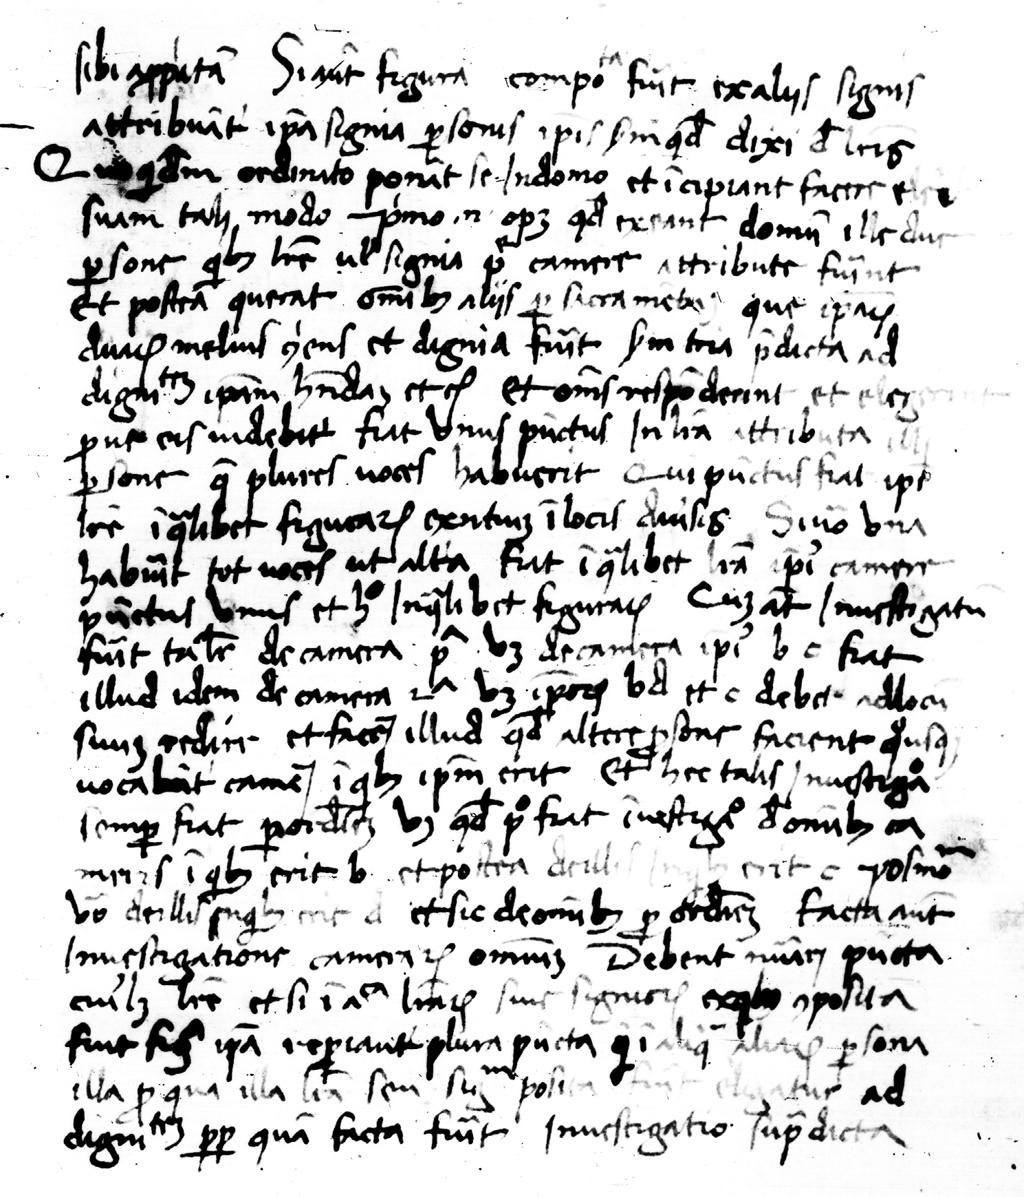 sibi apptatā Si aūt figura compota fuīt ex aliis signis
attribuāt ipa signa psonis ipis sm qd dixi d lris
Quo qdm ordinato ponāt se In domo et īcipiant facere ele
suam tali modo pmo n opz qd exeant domū ille due
psone qib lre ul signa pe camere attribute fuīnt
Et postea querat omib aliis p sacramētū que ipaꝝ
duaꝝ melius 9ueniens et digna fuīt sm tria pdicta ad
dignitez ipam hndaz etc Et oms respōderint et elegerint
prout eis uidebit fiat vnus pūctus In lra attributa illi
psone q plures uoces habuerit Qui pūctus fiat ipe
lre ī qlibet figuraꝝ exntiuz ī locis diuisis Si uo vna
habuīt tot uoces ut altia fiat ī qlibet lra ipi camere
pūctus vnus et ho In qlibet figuraꝝ Cuz at Inuestigatū
fuīt tale de camera pa vz de camera ipi b c fiat
illud idem de camera 2a vz ipoꝝ b d et c debet ad locū
suuz redire et facere illud qd altere psone facient quousq
vocabāt camere ī qib ipm erit Et hec talis Inuestigao
semp fiat p ordiez vz qd po fiat īuestigao d omib ca
meris ī qib erit b et postea de illis In qib erit c postmo
vo de illis In qib erit d et sic de omib p ordiez facta aūt
Inuestigatione cameraꝝ omiuz Debent nuāri pūcta
cuilz lre et si ī aca lraꝝ siue signoꝝ ex qib 9posita
fuit figa ipa repiant plura pūcta q ī aliq aliaꝝ psona
illa p qua illa lra seu sigm posita fuīt eligatur ad
dignitez pp quā facta fuīt Inuestigatio supdicta